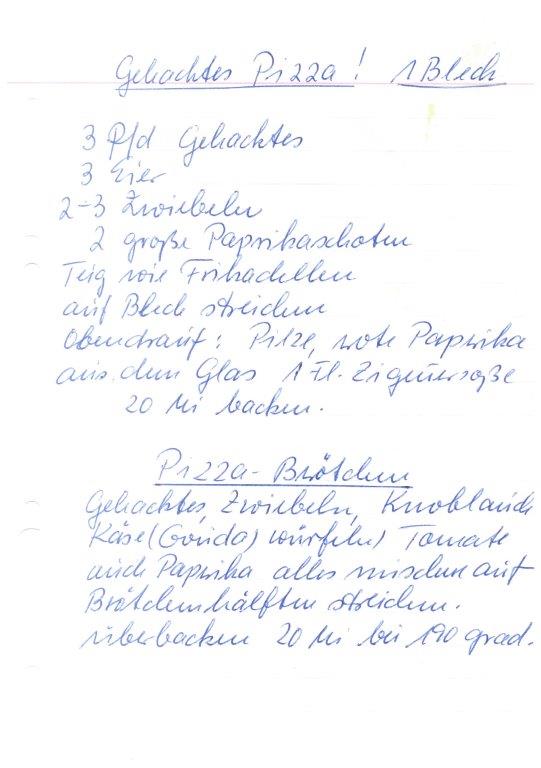 Gehacktes Pizza! 1 Blech
3 Pfd Gehacktes
3 Eier
2-3 Zwiebeln
2 große Paprikaschoten
Teig wie Frikadellen
auf Blech streichen
Obendrauf: Pilze, rote Paprika
aus dem Glas 1 Fl. Zigeunersoße
20 Mi backen.
Pizza-Brötchen
Gehacktes, Zwiebeln, Knoblauch
Käse (Gouda) würfeln) Tomate
auch Paprika alles mischen auf
Brötchenhälften streichen.
überbacken 20 Mi bei 190 grad.